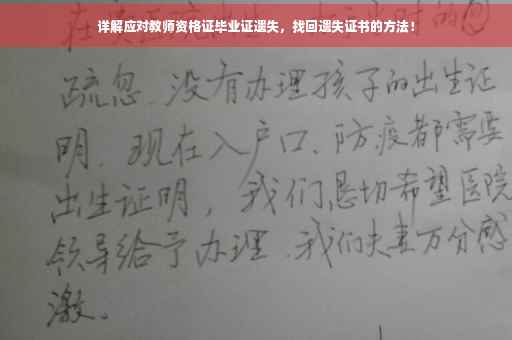 详解应对教师资格证毕业证遗失，找回遗失证书的方法！
疏忽、没有办理孩子的出生证
明、现在入户口、防疫都需要
出生证明，我们恳切希望医院
领导给予办理、我们夫妻万分感
激。